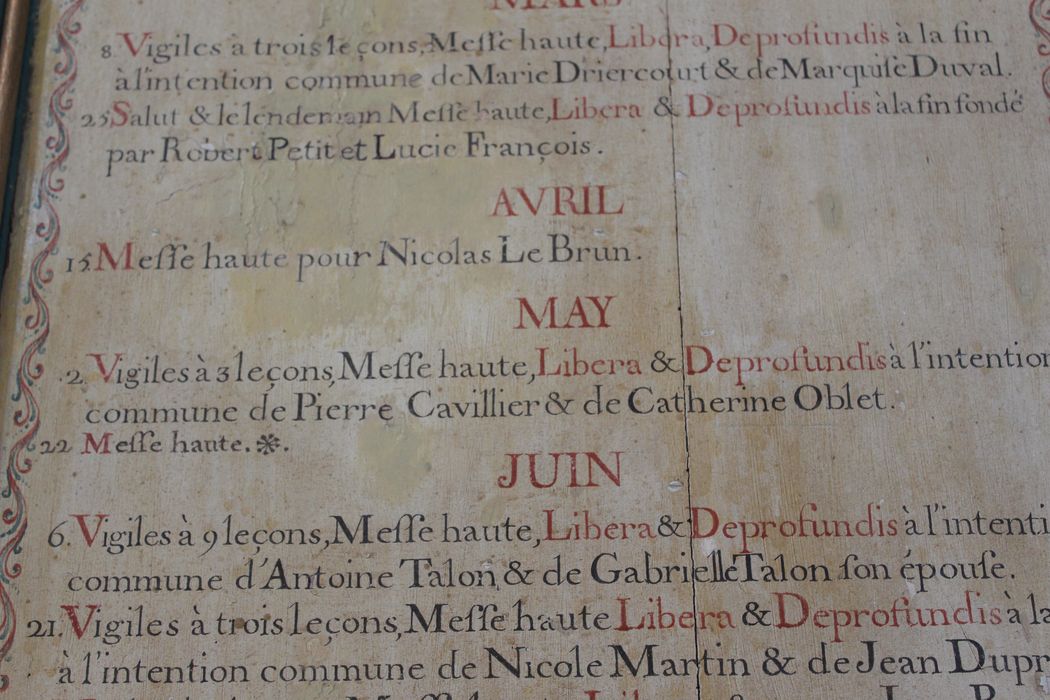 MARS
8. Vigiles à trois leçons, Meſſe haute, Libera, De profundis à la fin
à l'intention commune de Marie Driercourt & de Marquiſe Duval.
25 Salut & le lendemain Meſſe haute, Libera & De profundis à la fin fondé
par Robert Petit et Lucie François.
AVRIL
15. Meſſe haute pour Nicolas Le Brun.
MAY
2. Vigiles à 3 leçons, Meſſe haute, Libera & De profundis à l'intention
commune de Pierre Cavillier & de Catherine Oblet.
22 Meſſe haute. ✻.
JUIN
6. Vigiles à 9 leçons, Meſſe haute, Libera & De profundis à l'intenti
commune d'Antoine Talon & de Gabrielle Talon ſon épouſe.
21. Vigiles à trois leçons, Meſſe haute Libera & De profundis à la
à l'intention commune de Nicole Martin & de Jean Dupr